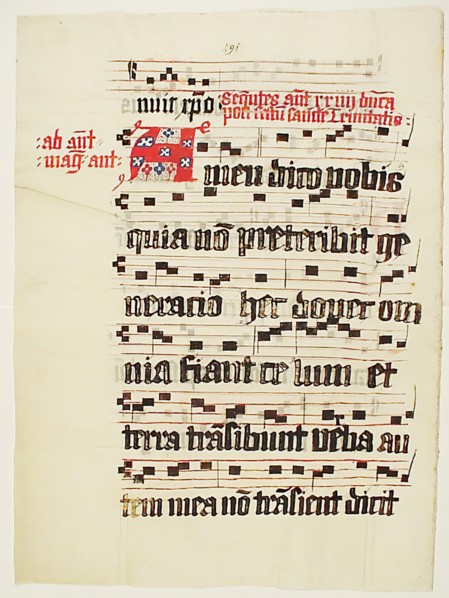 nuit xp̄o
post festu sancte Trinitatis
Amen dico vobis
quia nō preteribit ge
neracio hec donec om
nia fiant celum et
terra trāsibunt v̄ba au
tem mea nō trāsient dicit